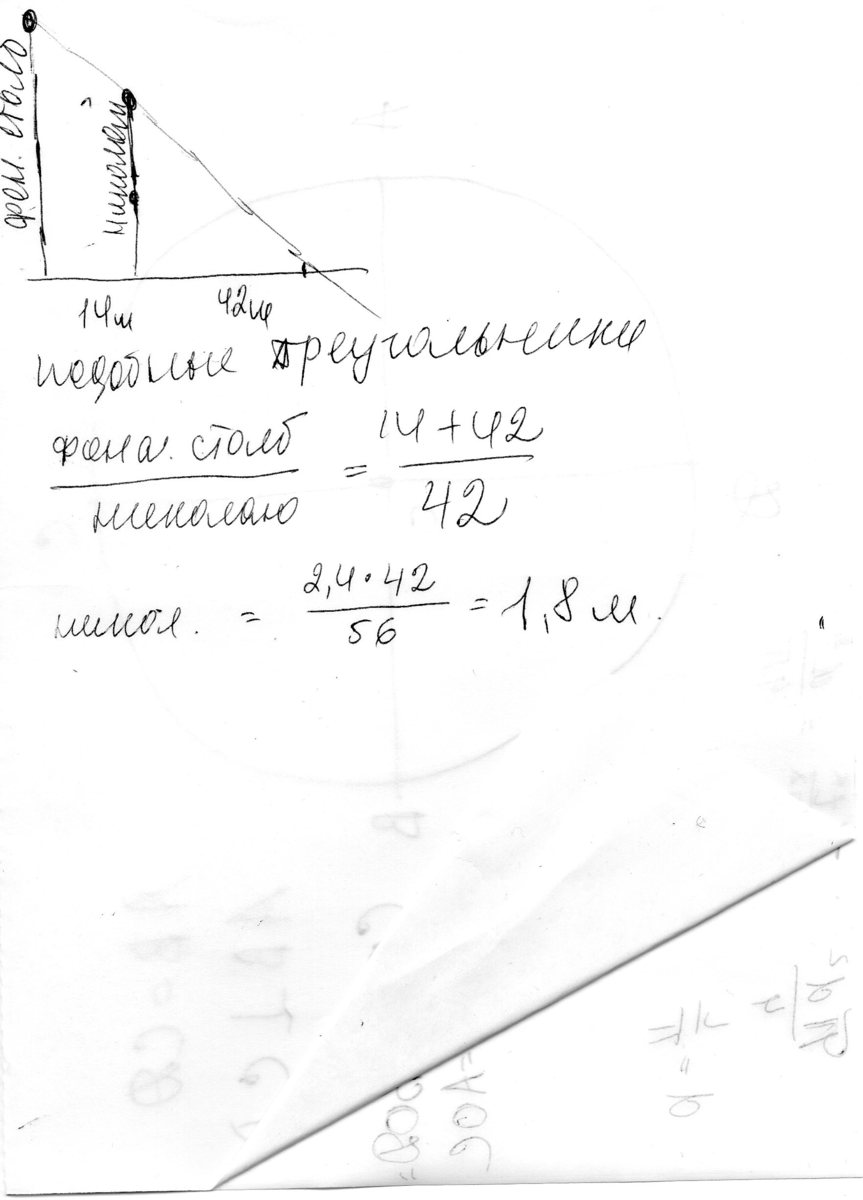 фон. столб
николай
14м 42м
подобные треугольники
фона. столб / николаю = 14+42 / 42
никол. = 2,4·42 / 56 = 1,8 м.